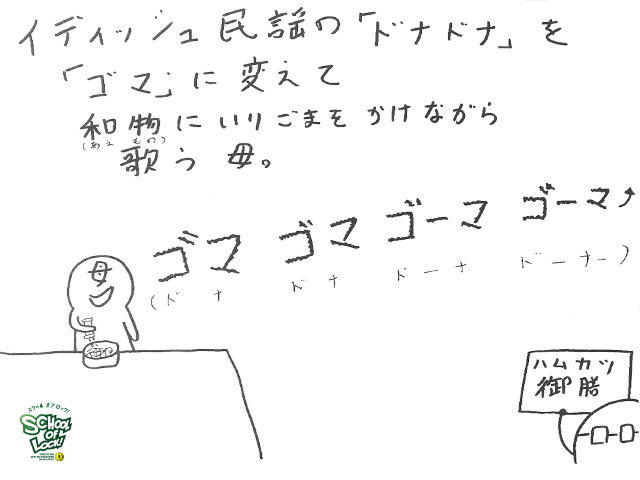 イディッシュ民謡の「ドナドナ」を
「ゴマ」に変えて
和物にいりごまをかけながら
(あえ もの)
歌う 母。
ゴマ ゴマ ゴーマ ゴーマ
(ドナ ドナ ドーナ ドーナー)
母
ハムカツ
御膳
スクールオブロック!
SCHOOL
OF
LOCK!